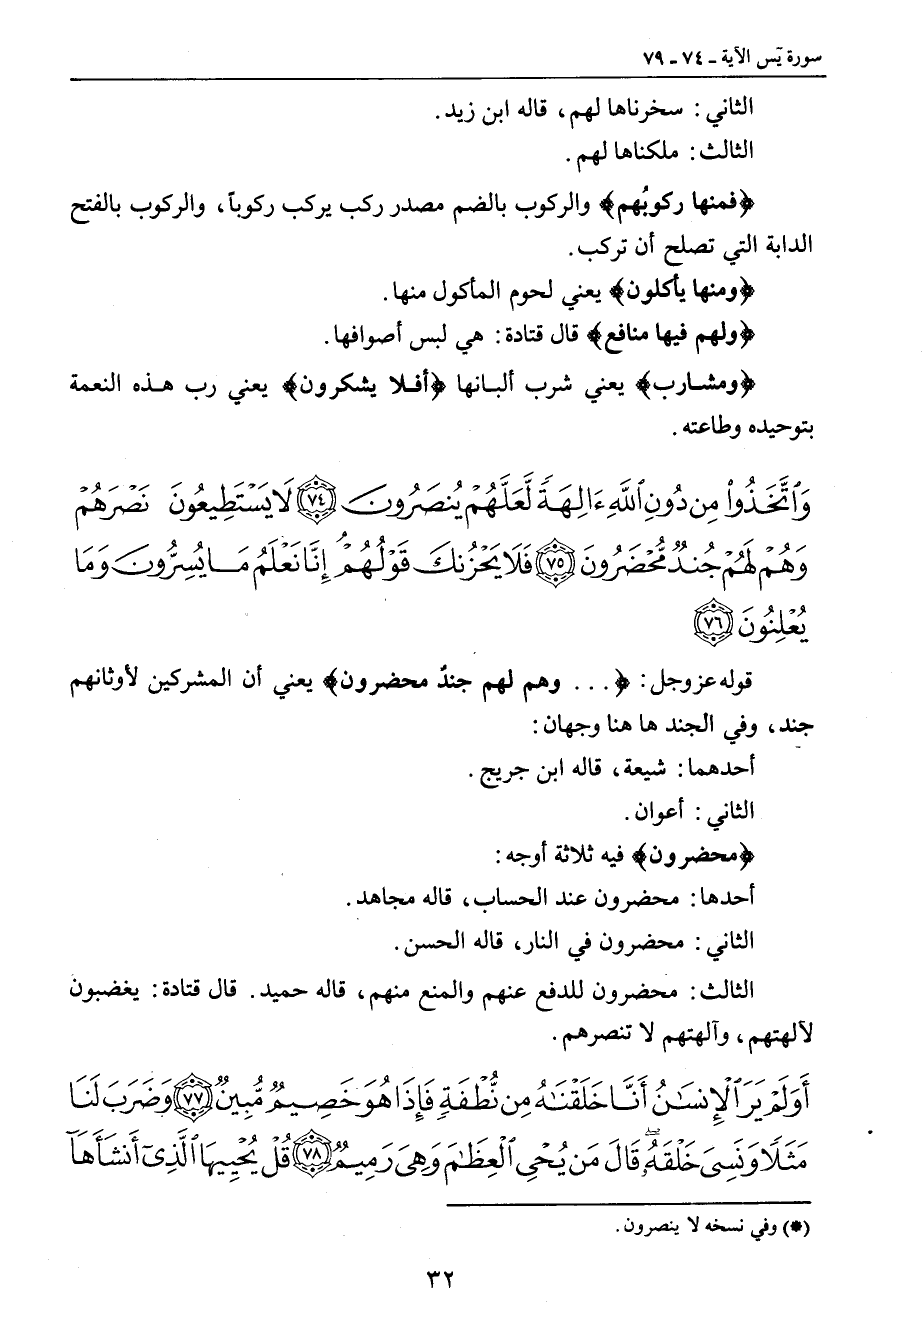 سورة يٓس الآية ـ ٧٤ ـ ٧٩
الثاني: سخرناها لهم، قاله ابن زيد.
الثالث: ملكناها لهم.
﴿فمنها ركوبُهم﴾ والركوب بالضم مصدر ركب يركب ركوباً، والركوب بالفتح
الدابة التي تصلح أن تركب.
﴿ومنها يأكلون﴾ يعني لحوم المأكول منها.
﴿ولهم فيها منافع﴾ قال قتادة: هي لبس أصوافها.
﴿ومشارب﴾ يعني شرب ألبانها ﴿أفلا يشكرون﴾ يعني رب هذه النعمة
بتوحيده وطاعته.
وَٱتَّخَذُوا۟ مِن دُونِ ٱللَّهِ ءَالِهَةً لَّعَلَّهُمْ يُنصَرُونَ ﴿٧٤﴾ لَا يَسْتَطِيعُونَ نَصْرَهُمْ
وَهُمْ لَهُمْ جُندٌ مُّحْضَرُونَ ﴿٧٥﴾ فَلَا يَحْزُنكَ قَوْلُهُمْ إِنَّا نَعْلَمُ مَا يُسِرُّونَ وَمَا
يُعْلِنُونَ ﴿٧٦﴾
قوله عز وجل: ﴿... وهم لهم جندٌ محضرون﴾ يعني أن المشركين لأوثانهم
جند، وفي الجند ها هنا وجهان:
أحدهما: شيعة، قاله ابن جريج.
الثاني: أعوان.
﴿محضرون﴾ فيه ثلاثة أوجه:
أحدها: محضرون عند الحساب، قاله مجاهد.
الثاني: محضرون في النار، قاله الحسن.
الثالث: محضرون للدفع عنهم والمنع منهم، قاله حميد. قال قتادة: يغضبون
لآلهتهم، وآلهتهم لا تنصرهم.
أَوَلَمْ يَرَ ٱلْإِنسَٰنُ أَنَّا خَلَقْنَٰهُ مِن نُّطْفَةٍ فَإِذَا هُوَ خَصِيمٌ مُّبِينٌ ﴿٧٧﴾ وَضَرَبَ لَنَا
مَثَلًا وَنَسِىَ خَلْقَهُۥ ۖ قَالَ مَن يُحْىِ ٱلْعِظَٰمَ وَهِىَ رَمِيمٌ ﴿٧٨﴾ قُلْ يُحْيِيهَا ٱلَّذِىٓ أَنشَأَهَآ
(*) وفي نسخه لا ينصرون.
٣٢